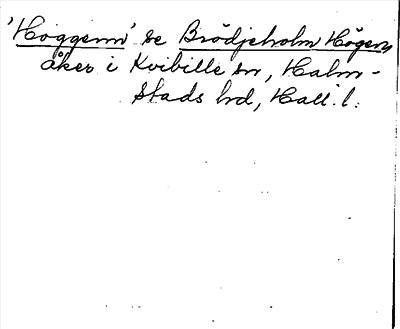 'Höggenn' se Brödjeholm Högens
åker i Kvibille sn, Halm-
stads hd, Hall. l.